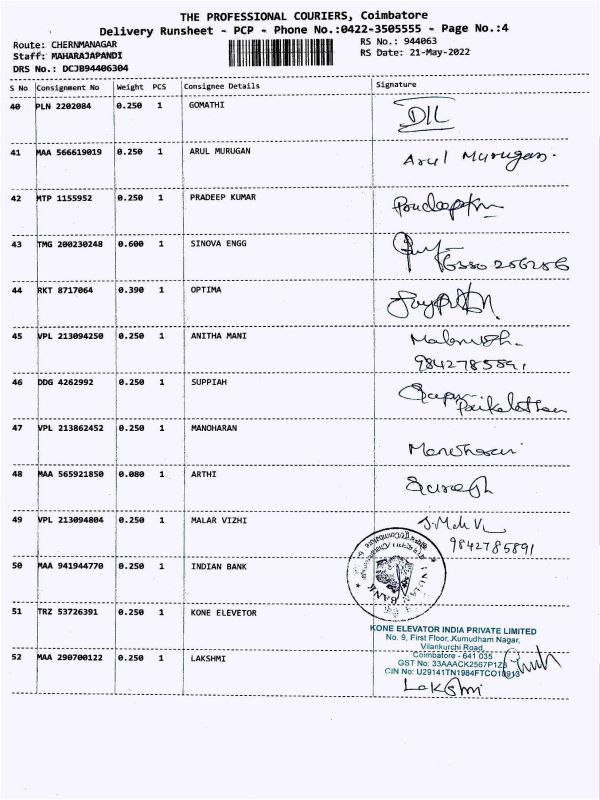 THE PROFESSIONAL COURIERS, Coimbatore
Delivery Runsheet - PCP - Phone No.:0422-3505555 - Page No.:4
Route: CHERNMANAGAR
Staff: MAHARAJAPANDI
DRS No.: DCJB94406304
RS No.: 944063
RS Date: 21-May-2022
S No Consignment No Weight PCS Consignee Details Signature
40 PLN 2202084 0.250 1 GOMATHI
41 MAA 566619019 0.250 1 ARUL MURUGAN Arul Murugan.
42 MTP 1155952 0.250 1 PRADEEP KUMAR
43 TMG 200230248 0.600 1 SINOVA ENGG
6380 256256
44 RKT 8717064 0.390 1 OPTIMA
45 VPL 213094250 0.250 1 ANITHA MANI
9842785891
46 DDG 4262992 0.250 1 SUPPIAH
47 VPL 213862452 0.250 1 MANOHARAN Manoharan
48 MAA 565921850 0.080 1 ARTHI Suresh
49 VPL 213094804 0.250 1 MALAR VIZHI
9842785891
50 MAA 941944770 0.250 1 INDIAN BANK
51 TRZ 53726391 0.250 1 KONE ELEVETOR
KONE ELEVATOR INDIA PRIVATE LIMITED
No. 9, First Floor, Kumudham Nagar,
Vilankurchi Road,
Coimbatore - 641 035
GST No: 33AAACK2567P1Z
CIN No: U29141TN1984FTC
52 MAA 290700122 0.250 1 LAKSHMI Lakshmi